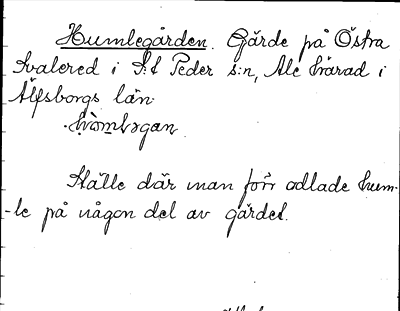 Humlegården. Gärde på Östra
Kvalered i S:t Peder s:n, Ale härad i
Älfsborgs län.
Ställe där man förr odlade hum-
-le på någon del av gärdet.